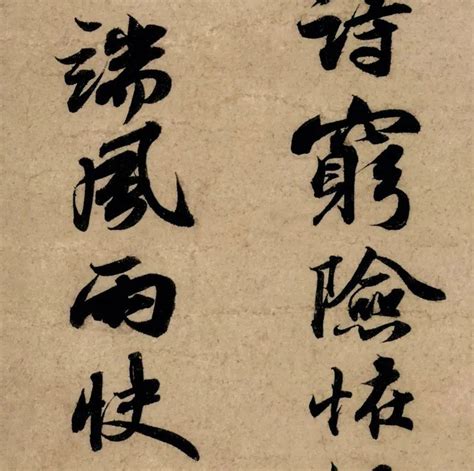 詩窮險恠
端風雨快